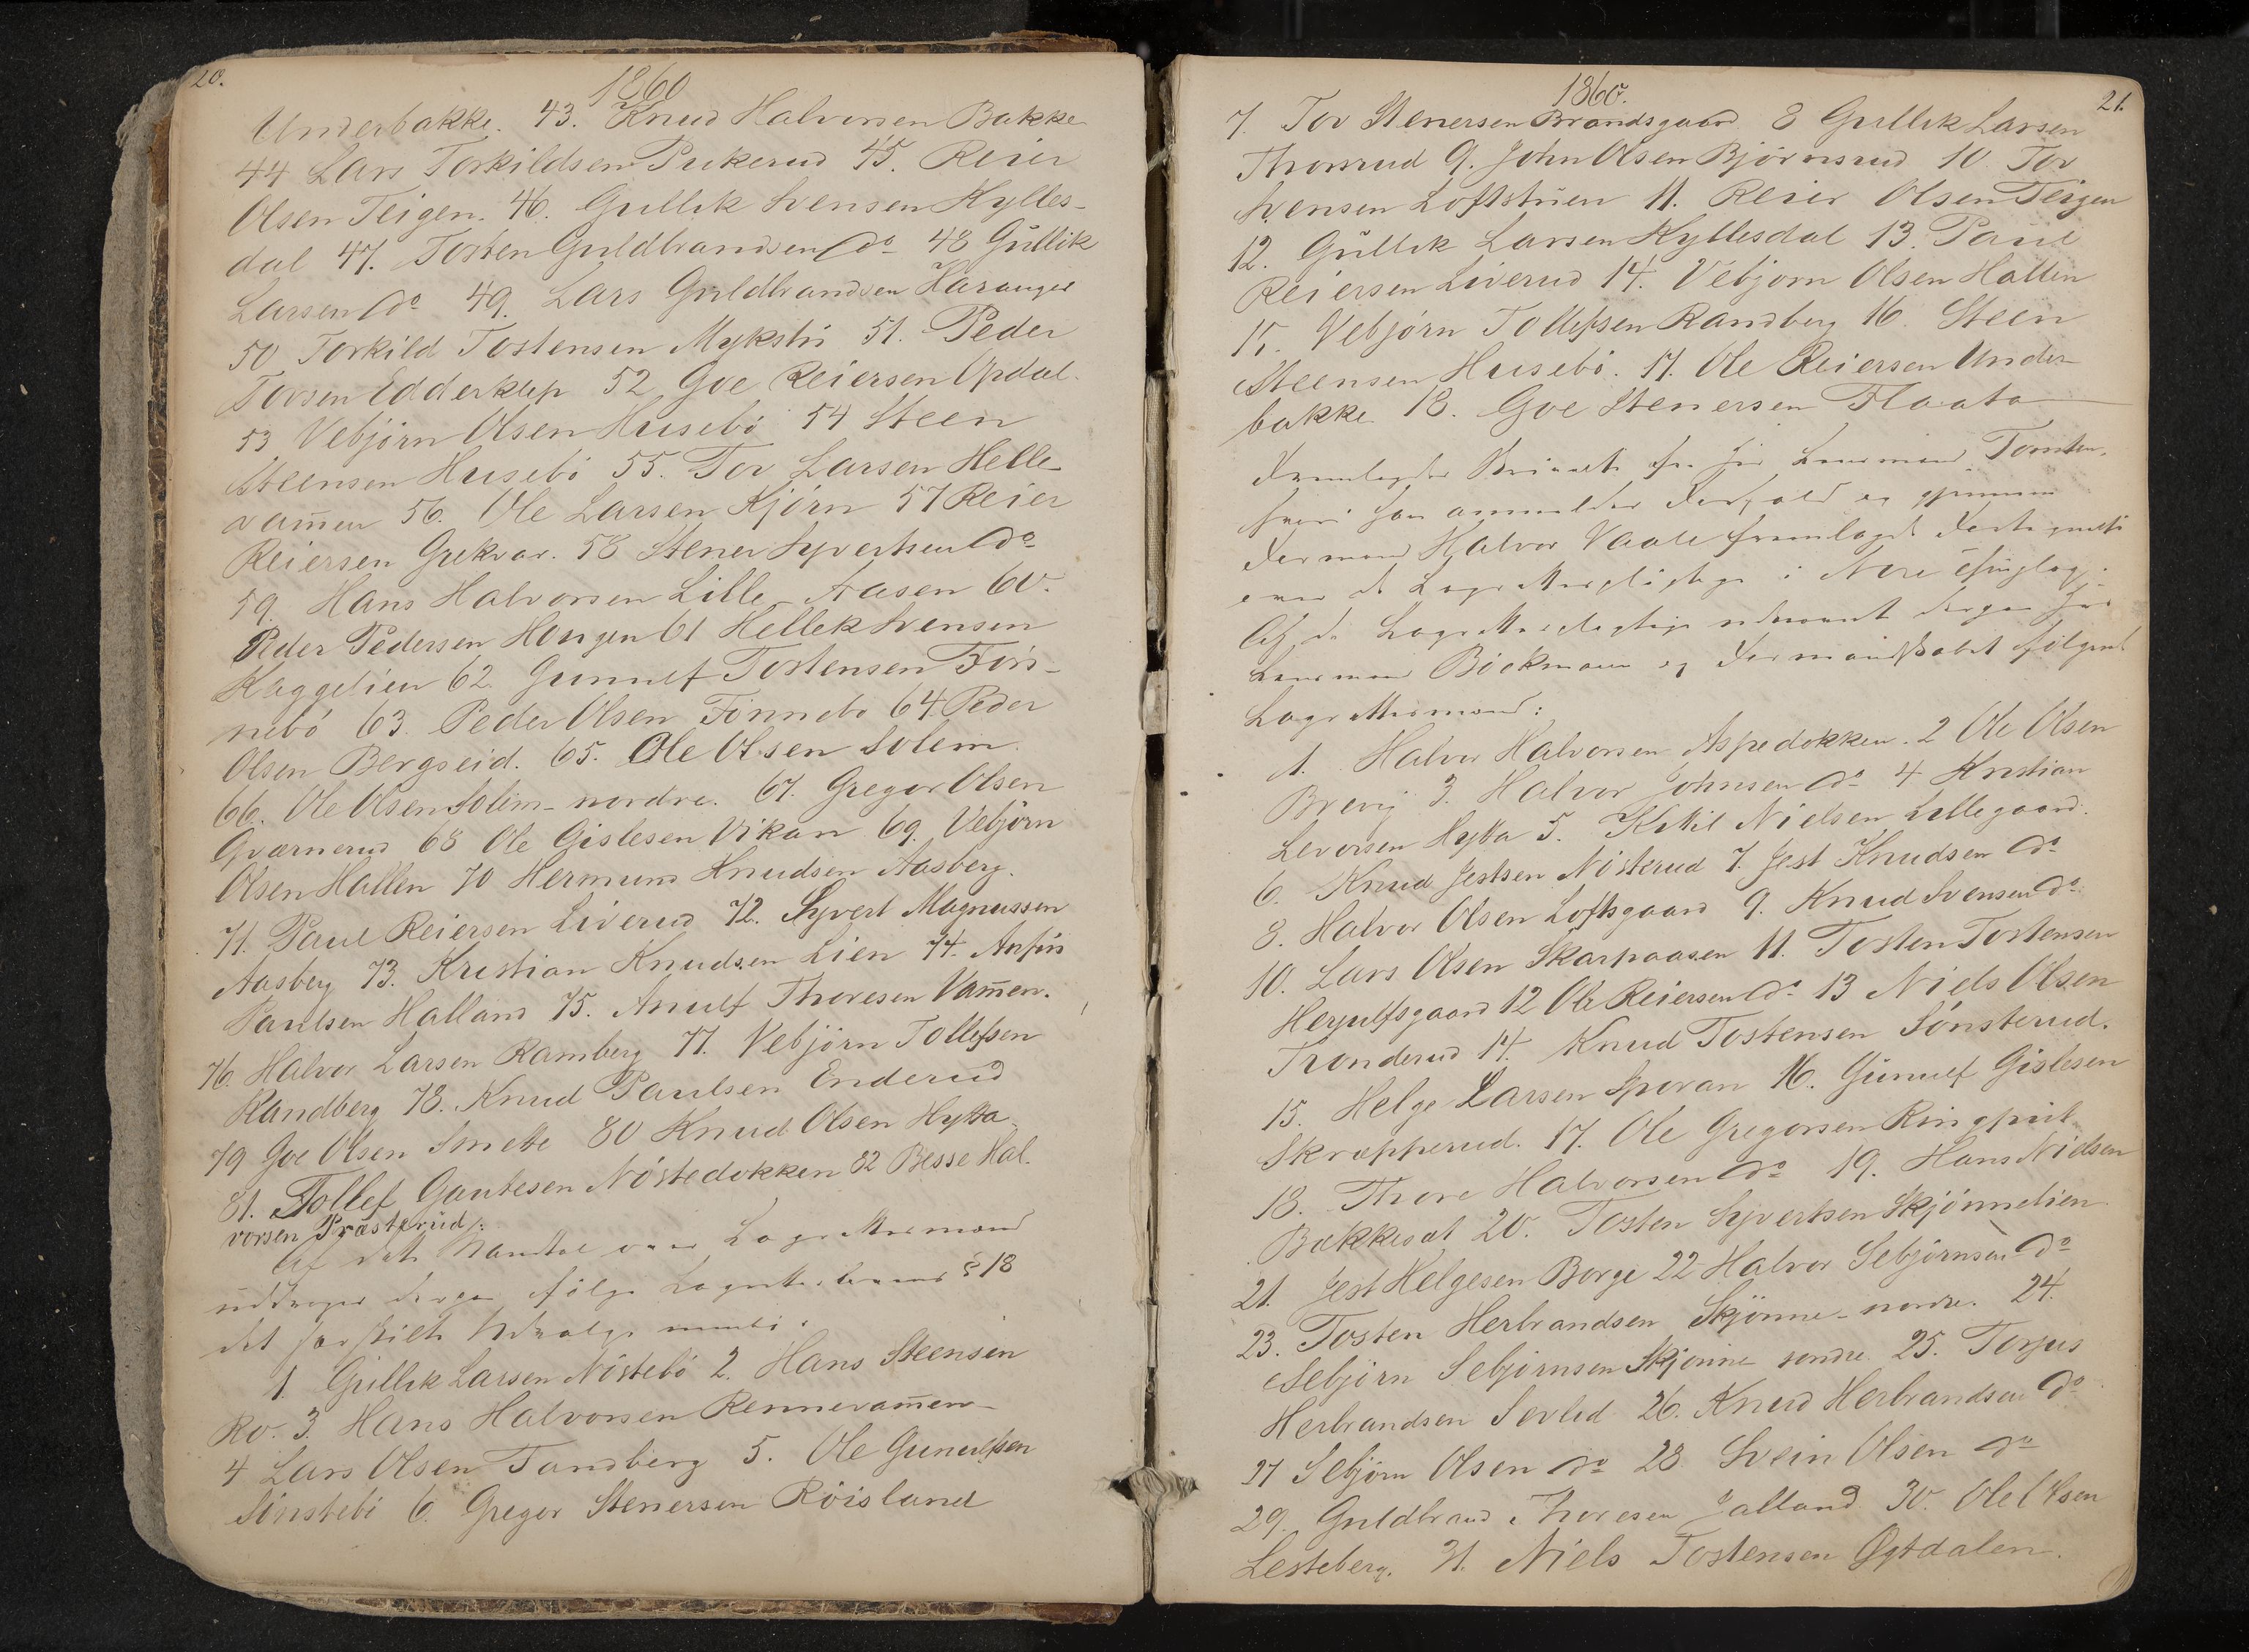 20.
1860
Underbakke. 43. Knud Halvorsen Bakke
44 Lars Torkildsen Pukerud 45. Reier
Olsen Teigen. 46. Gullik Svensen Hylles-
dal 47. Tosten Guldbrandsen do 48 Gullik
Larsen do 49. Lars Guldbrandsen
50 Torkild Tostensen Mykstu 51. Peder
Torsen Edderklep 52 Goe Reiersen Opdal.
53 Vebjörn Olsen Husebö 54 Steen
Steensen Husebö 55. Tor Larsen Helle-
vam̄en 56. Ole Larsen Kjörn 57 Reier
Reiersen 58 Stener Syvertsen do
59. Hans Halvorsen Lille-Aasen 60.
Peder Pedersen Hougen 61 Hellek Svensen
Kaggelien 62. Gunnulf Tostensen Fön-
nebö 63. Peder Olsen Fönnebö 64. Peder
Olsen Bergseid. 65. Ole Olsen Solem
66. Ole Olsen Solem-nordre. 67. Gregor Olsen
Qværnerud 68 Ole Gislesen Vikan 69. Vebjörn
Olsen Hallen 70 Hermund Knudsen Aasberg.
71. Paul Reiersen Liverud 72. Syvert Magnussen
Aasberg 73. Kristian Knudsen Lien 74. Anfin
Paulsen Halland 75. Anulf Thoresen Vam̄en.
76. Halvor Larsen Ramberg 77. Vebjörn Tollefsen
Randberg 78. Knud Paulsen Enderud
79 Goe Olsen Smebe 80 Knud Olsen Hytta
81. Tollef Gautesen Nöstedokken 82 Besse Hal-
vorsen Prästerud
Af dette Mandtal over Lagrettesmænd
udtoges derpaa ifölge § 18
det 
1. Gullik Larsen Nöstebö 2. Hans Steensen
Ro. 3. Hans Halvorsen Rennevam̄en
4 Lars Olsen Tandberg 5. Ole Gunulfsen
Sönstebö 6. Gregor Stenersen Röisland
1860.
21.
7. Tor Stenersen Brandsgaard 8 Gullik Larsen
Thonrud 9. John Olsen Björnsrud 10. Tor
Svensen Loftstuen 11. Reier Olsen Teigen
12. Gullik Larsen Hyllesdal 13. Paul
Reiersen Liverud 14. Vebjorn Olsen Hallen
15. Vebjörn Tollefsen Randberg 16. Steen
Steensen Husebö. 17. Ole Reiersen Under-
bakke 18. Goe Stenersen Flaata
Lensmand Tomten,
han anmelder Forfald og gjennem
Formand Halvor Vaale fremlagt
over de i Nore
Af de
Lensmand Böckmann og Formandskabet fölgende
Lagrettesmænd:
1. Halvor Halvorsen Aspedokken. 2 Ole Olsen
Brevig 3. Halvor Johnsen do 4 Kristian
Leversen Hytta 5. Kittil Nielsen Lillegaard.
6. Knud Jestsen Nösterud 7. Jest Knudsen do
8. Halvor Olsen Loftsgaard 9. Knud Svensen do
10. Lars Olsen Skarpaasen 11. Tosten Tostensen
Herjulfsgaard 12 Ole Reiersen do 13 Niels Olsen
Tronderud 14. Knud Tostensen Sönsterud.
15. Helge Larsen Sporan 16. Gunulf Gislesen
Skræpperud. 17. Ole Gregorsen
18. Thore Halvorsen do 19. Hans Nielsen
Bækkesæt 20. Tosten Syvertsen Skjönnelien
21. Jest Helgesen Borge 22 Halvor Sebjörnsen do
23. Tosten Herbrandsen Skjönne-nordre. 24.
Sebjörn Sebjörnsen Skjönne söndre 25. Torjus
Herbrandsen Sevlid 26. Knud Herbrandsen do
27 Sebjörn Olsen do 28. Svein Olsen do
29. Guldbrand Thoresen Jalland 30. Ole Olsen
Lesteberg. 31. Niels Tostensen Ögtdalen.